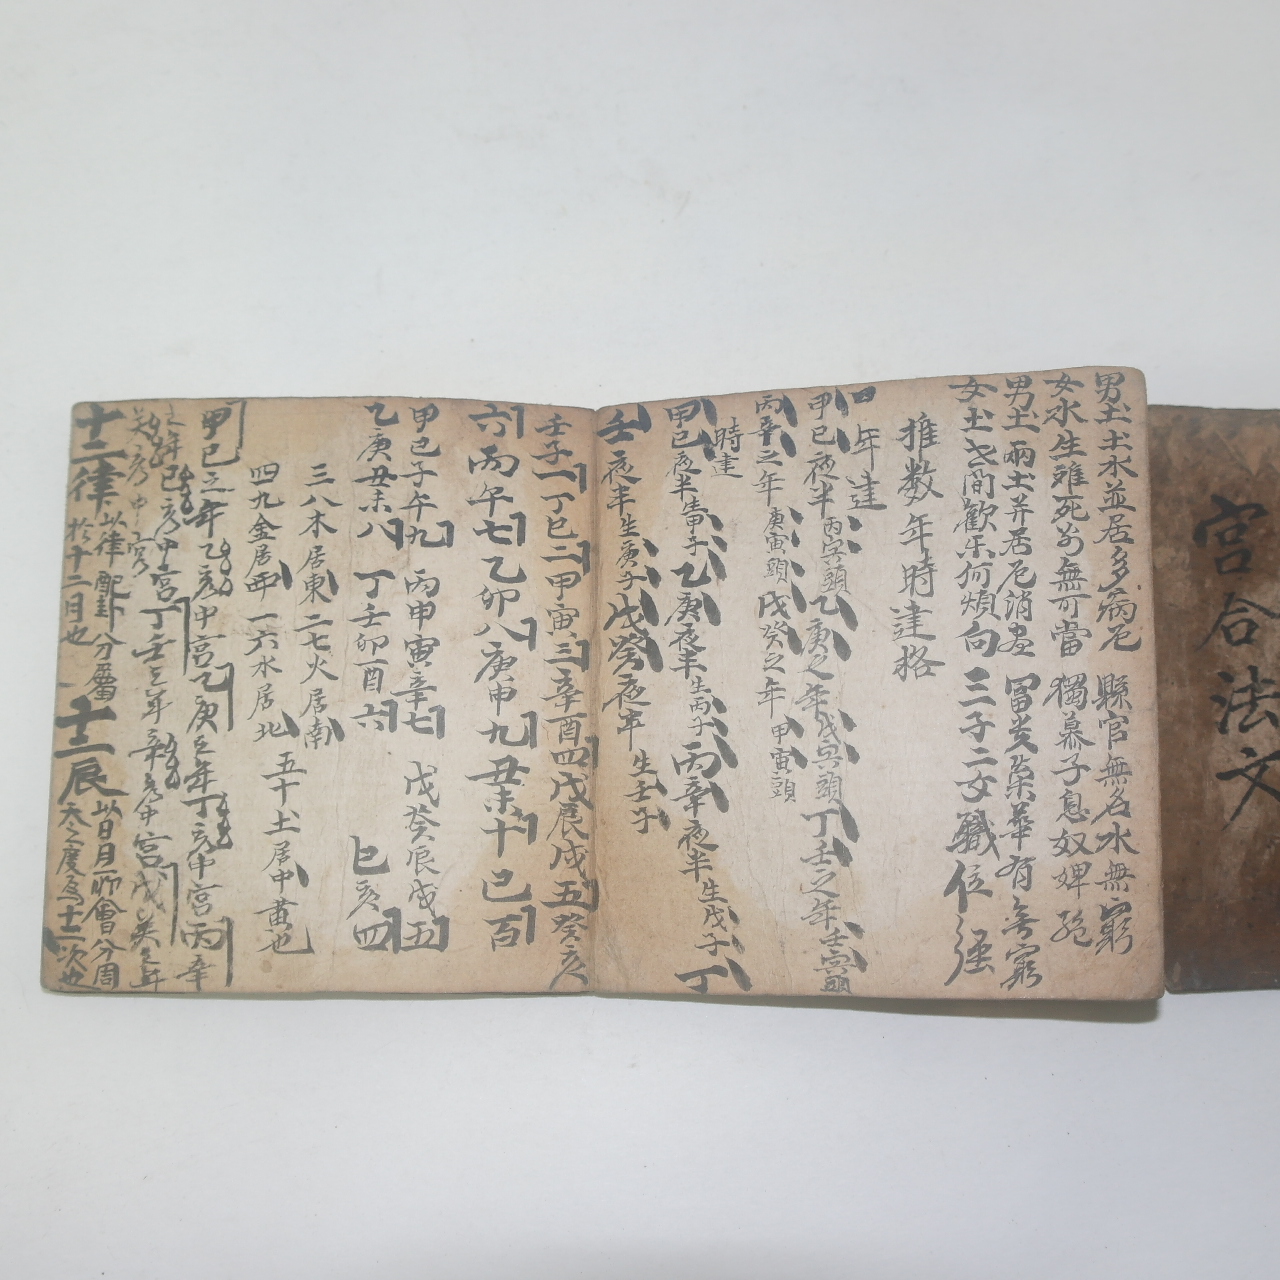 宮合法文
男土土水並居多病厄 縣官無名水無窮
女水生雖死sons無可當 獨慕子息奴婢
男土兩土并居厄消盡 冨貴榮華有無窮
女土之間歡樂何煩向 三子二女職位強
推数年時建格
年建
甲己夜半丙寅頭 乙庚之年戊寅頭 丁壬之年壬寅頭
丙辛之年庚寅頭 戊癸之年甲寅頭
時建
甲己夜半生甲子 乙庚夜半生丙子 丙辛夜半生戊子 丁
壬夜半生庚子 戊癸夜半生壬子
壬子一 丁巳二 甲寅三 辛酉四 戊辰戌五 癸亥
六 丙午七 乙卯八 庚申九 丑未十 巳百
甲己子午九 丙申寅辛七 戊癸辰戌五
乙庚丑未八 丁壬卯酉六 巳亥四
三八木居東 二七火居南
四九金居西 一六水居北 五十土居中黄也
甲己之年乙亥中宮 乙庚之年丁亥中宮 丙辛
之年己亥中宮 丁壬之年辛亥中宮 戊癸之年
癸亥中宮
十二律 此律配卦分屬
於十二月也
十二辰 此日月所會分周
天之度為十二次也